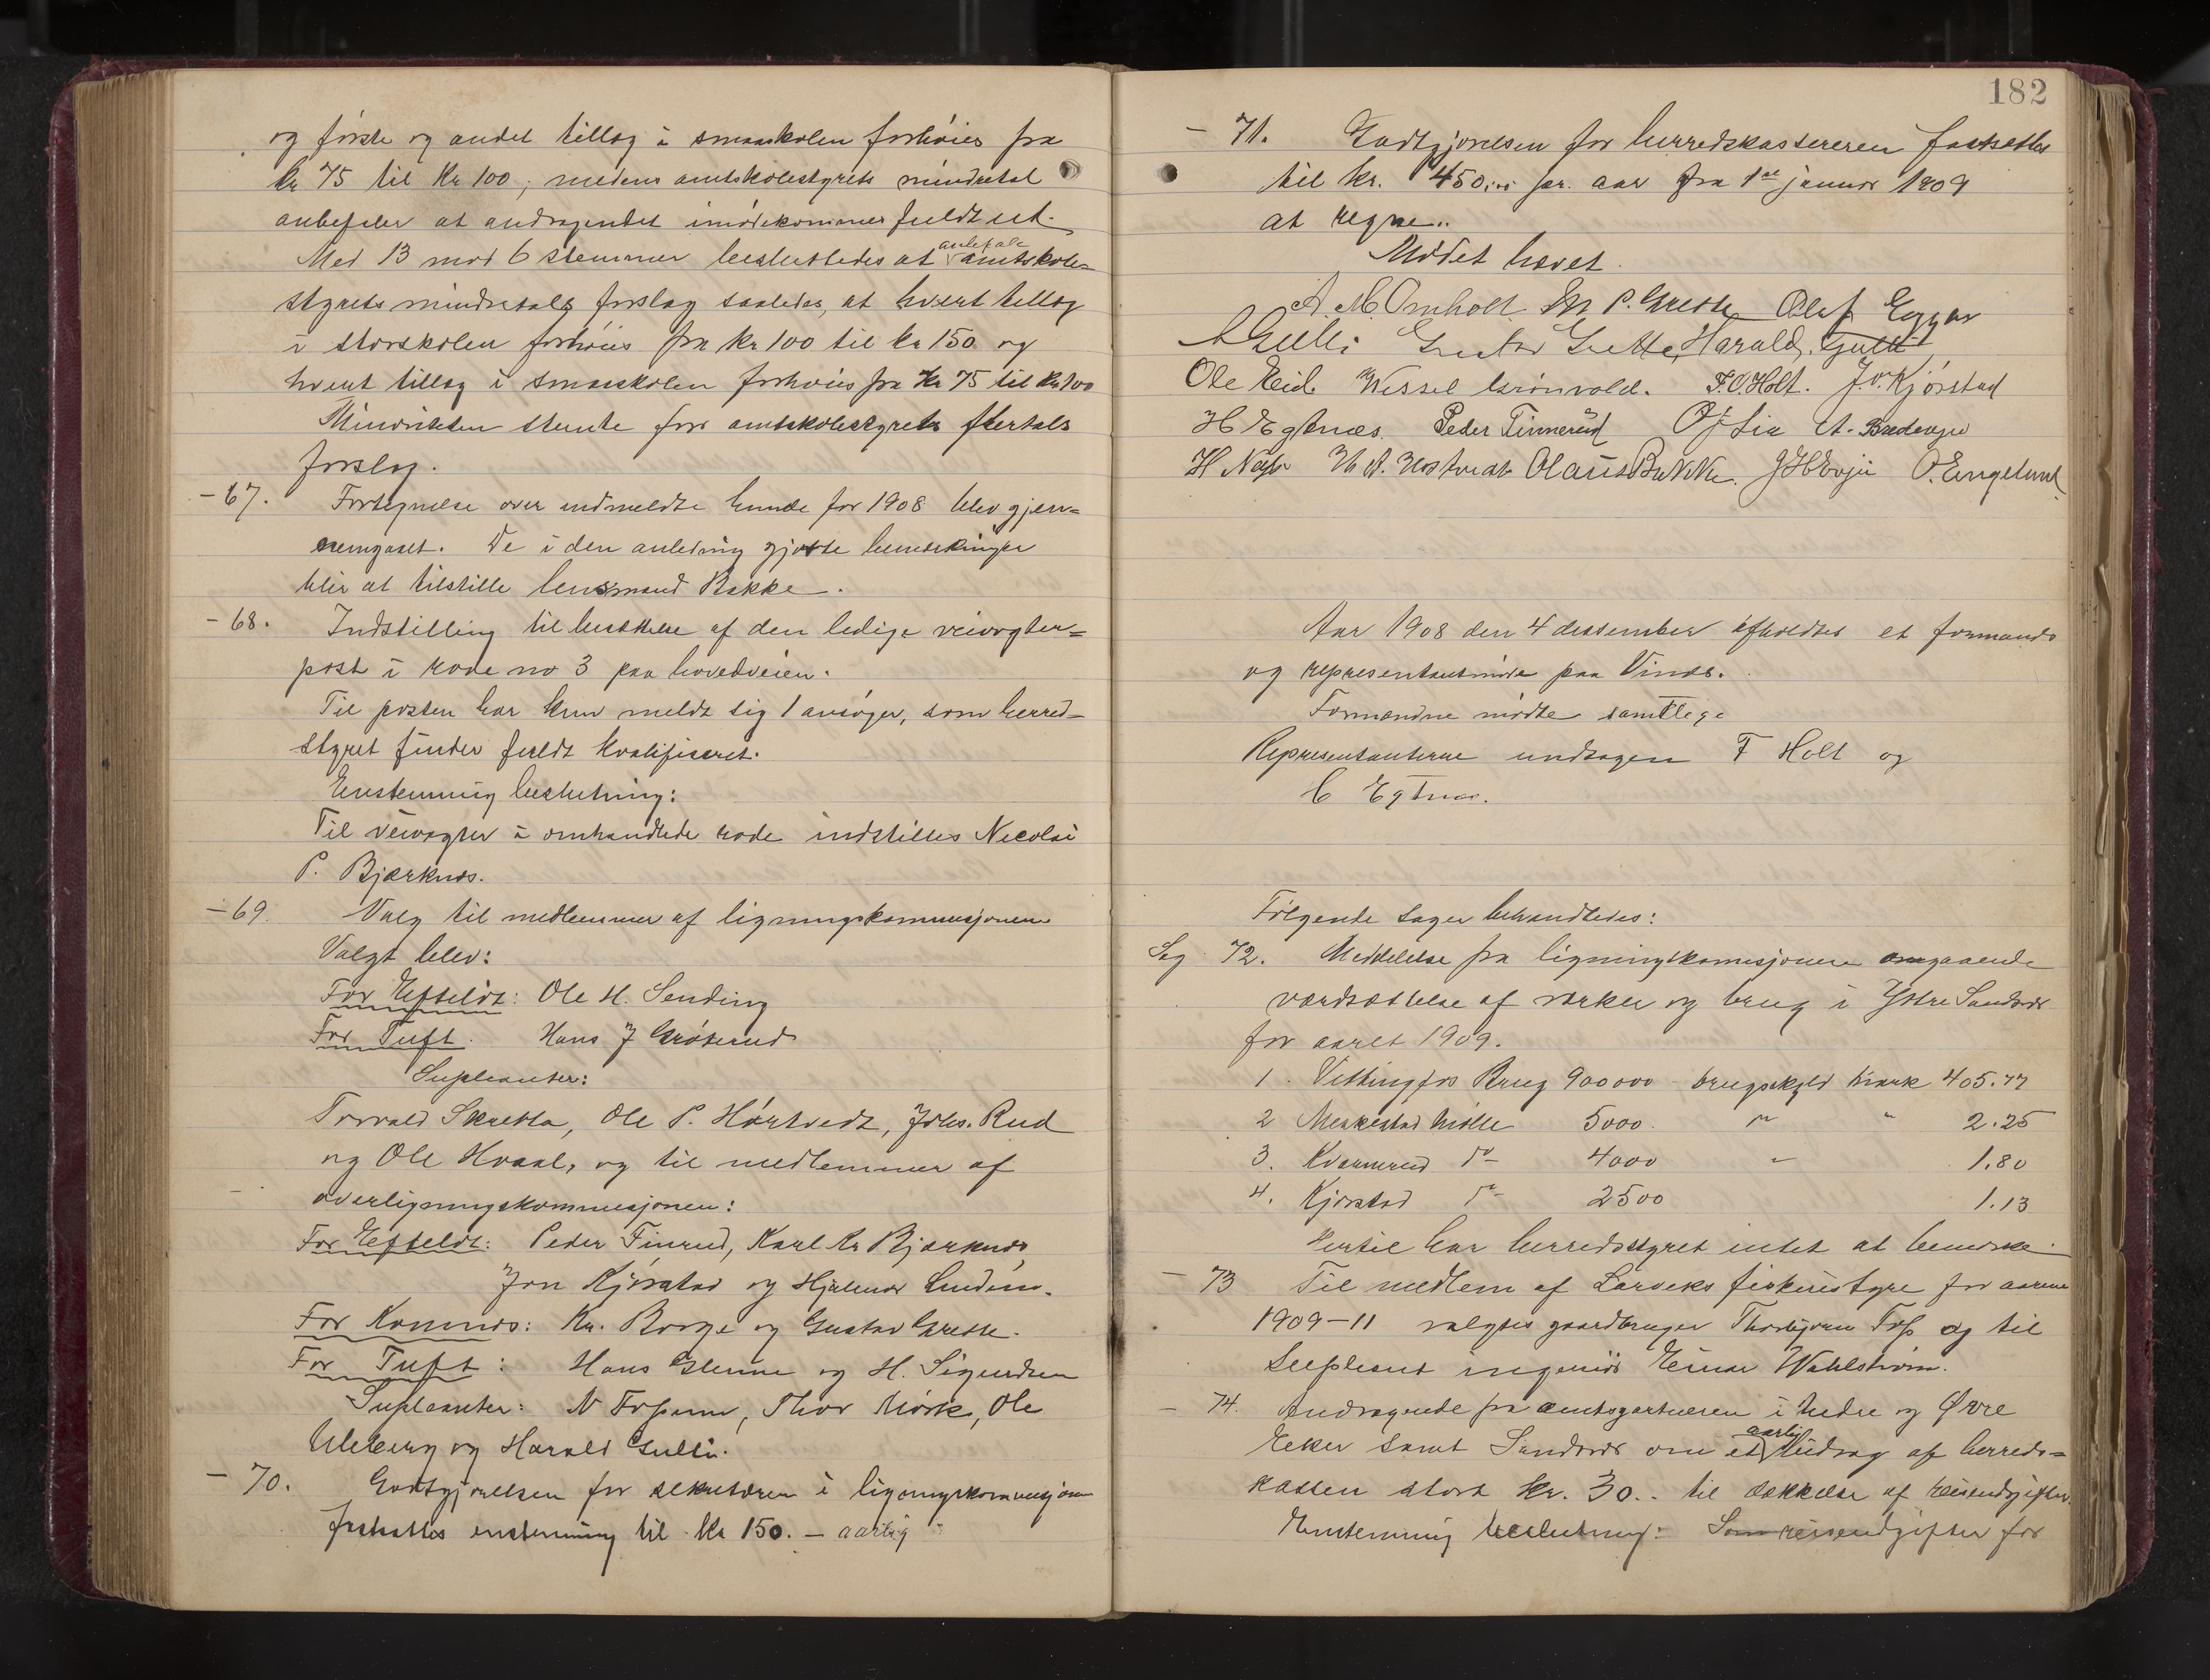 og første og andet tillæg i smaaskolen forhøies fra
kr 75 til kr 100; medens amtskolestyrets mindretal
anbefaler at andragendet imødekommes fuldt ut.
Med 13 mod 6 stemmer besluttedes at anbefale amtskole=
styrets mindretals forslag saaledes, at hvert tillæg
i storskolen forhøies fra kr 100 til kr 150 og
hvert tillæg i smaaskolen forhøies fra kr 75 til kr 100
Minoriteten stemte for amtskolestyrets flertals
forslag.
- 67. Fortegnelse over indmeldte hunde for 1908 blev gjen=
nemgaaet. De i den anledning gjorte bemerkninger
blir at tilstille lensmand Bakke.
- 68. Indstilling til besættelse af den ledige veivogter=
post i rode no 3 paa hovedveien.
Til posten har kun meldt sig 1 ansøger, som herred=
styret finder fuldt kvalificeret.
Enstemmig beslutning:
Til veivogter i omhandlede rode indstilles Nicolai
P. Bjerknes.
- 69. Valg til medlemmer af ligningskommisjonen
Valgt blev:
For Efteløt: Ole H. Sending
For Tuft. Hans J Grøterud
Supleanter:
Torvald Skretta, Ole P. Hørtvedt, Johs. Rud
og Ole Hvaal, og til medlemmer af
overligningskommisjonen:
For Efteløt: Peder Finrud, Karl Kr Bjerknes,
Jon Kjørstad og Hjalmar Lindem.
For Komnes: Kr. Borge og Gustav Grette.
For Tuft: Hans Glenne og H. Sigurdsen
Supleanter: N Fossum, Thor Mørk, Ole
Uleberg og Harald Gulli.
- 70. Godtgjørelsen for sekretæren i ligningskommisjonen
fastsattes enstemmig til kr 150. — aarlig
182
- 71. Godtgjørelsen for herredskassereren fastsættes
til kr. 450,00 pr. aar fra 1ste januar 1909
at regne..
Mødet hævet.
A. M. Omholt M P. Grette Olaf Eggar
A Gulli Gustav Grette, Harald. Gulli
Ole Eid. Wessel Grönvold. F. O. Holt. J. O. Kjørstad
H Egtnæs. Peder Finnerud O J Lia A.
H Næss H A. Olaus Bakke. J H Evju O. Englund
Aar 1908 den 4 dessember afholdtes et formands
og representantmøde paa Vinæs.
Formændne mødte samtlege
Representanterne undtagen F Holt og
C Egtnæs.
Følgende sager behandledes:
Sag 72. Meddelelse fra ligningskomisjonen angaaende
værdsættelse af verker og brug i Ytre Sandsvær
for aaret 1909.
1. Vittingfos Brug 900000 brugsskyld mark 405.77
2 Meakestad Mølle 5000. " " 2.25
3. Kvarnerud do 4000 " 1.80
4. Kjørstad do 2500 1.13
Hertil har herredsstyret intet at bemerke.
- 73 Til medlem af Larviks fiskeristyre for aarene
1909-11 valgtes gaardbruger Thorbjørn Foss og til
supleant ingeniør Einar Wahlstrøm.
- 74. Andragende fra amtsgartneren i Nedre og Øvre
Eker samt Sandsvær om et aarlig bidrag af herreds=
kassen stort kr. 30.- til dækkelse af reiseudgifter.
Enstemmig beslutning: Som reiseudgifter for